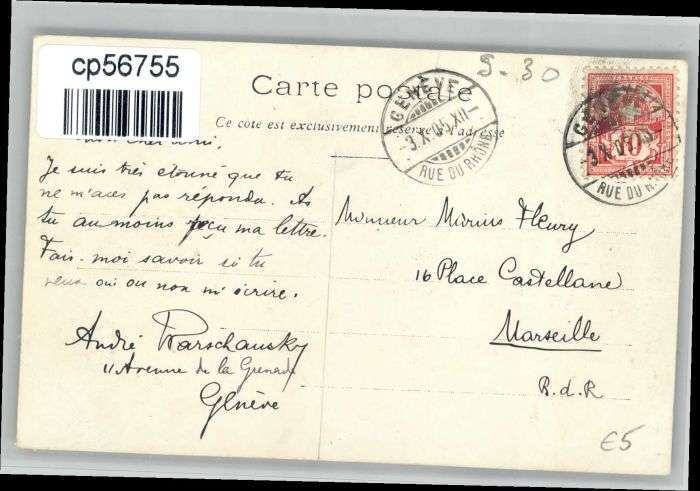 cp56755
5-30
Carte postale
Ce côté est exclusivement réservé à l'adresse
GENÈVE
3.X.05.XII
RUE DU RHÔNE
FRANCO
10
GENÈVE
3.X.05
RUE DU RHÔNE
Mon cher ami,
Je suis très étonné que tu
ne m'aies pas répondu. As
tu au moins reçu ma lettre.
Fais-moi savoir si tu
veux oui ou non m'écrire.
André Warschawsky
11 Avenue de la Grenade
Genève
Monsieur Marius Fleury
16 Place Castellane
Marseille
B.d.R
€5